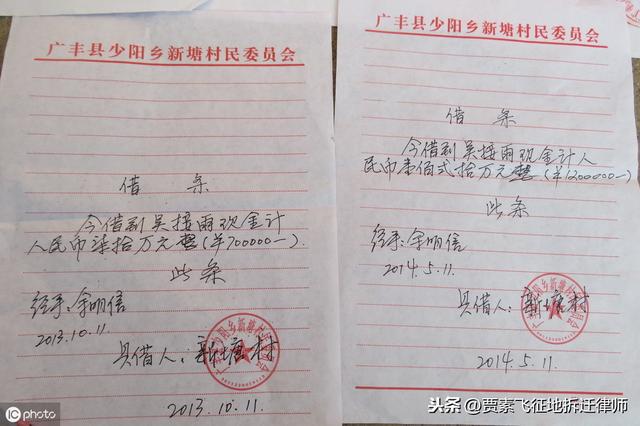 广丰县少阳乡新塘村民委员会
借 条
今借到吴接雨现金计
人民币柒拾万元整(¥700000—).
此条
经手:余明信
2013.10.11.
具借人:新塘村
2013.10.11.
广丰县少阳乡新塘村民委员会
借 条
今借到吴接雨现金计人
民币壹佰弍拾万元整(¥1200000—)
此条
经手:余明信
2014.5.11.
具借人:新塘村
2014.5.11.
iC photo
头条@贾素飞征地拆迁律师